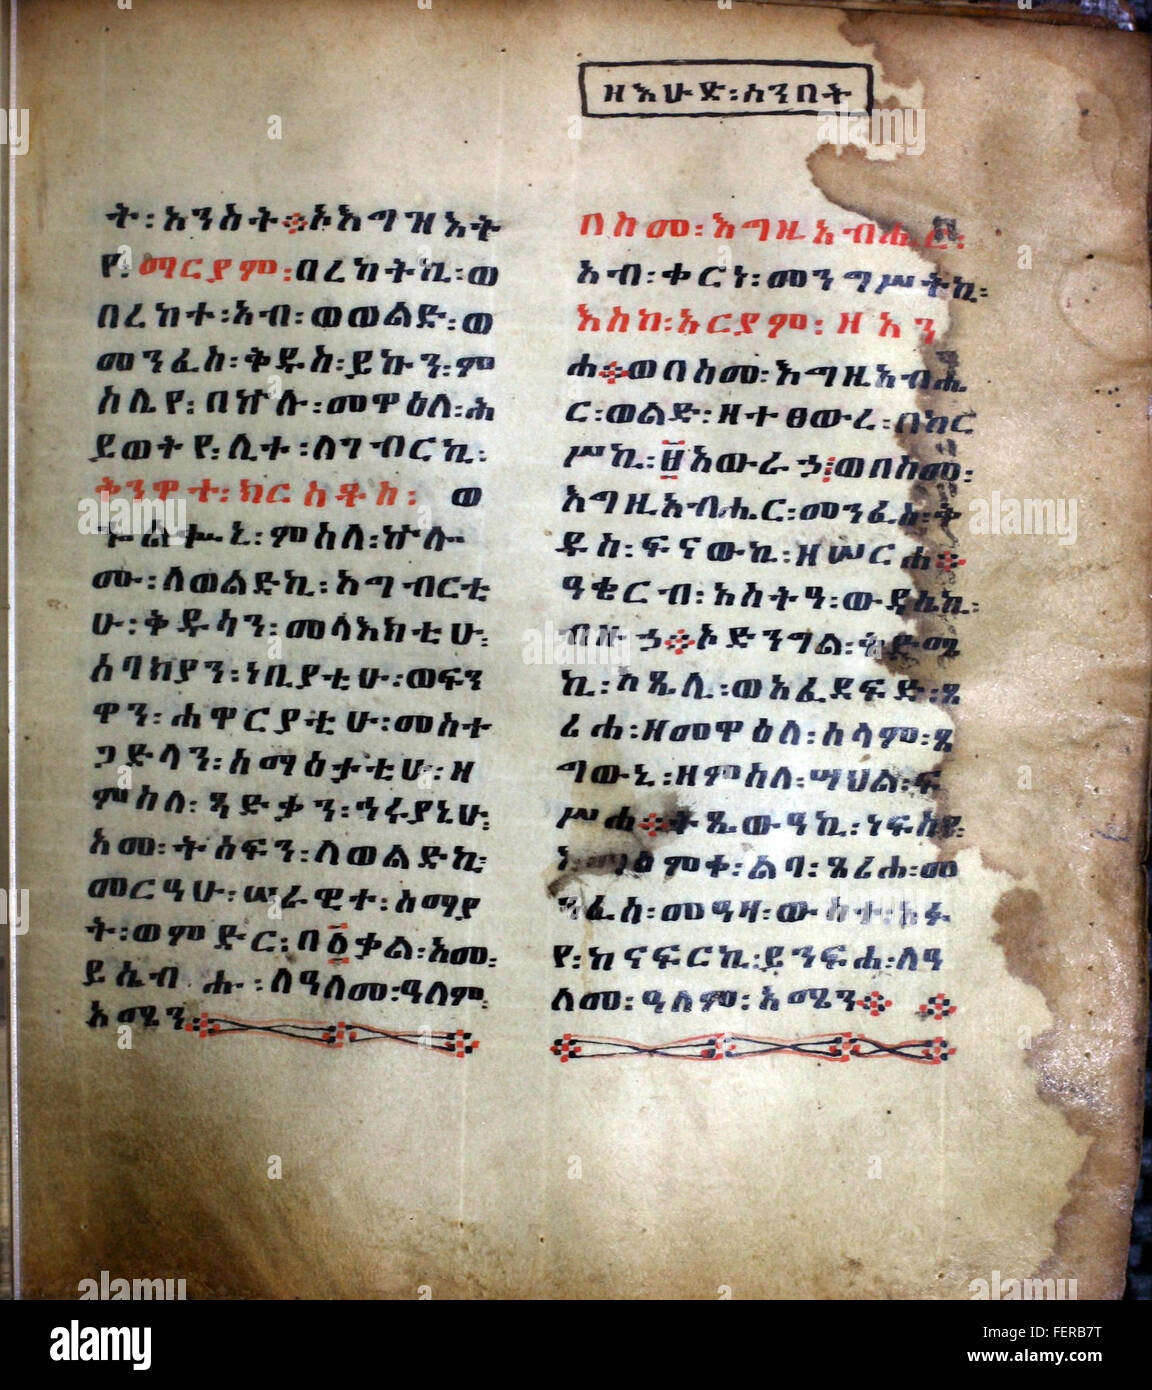 ዘእሁድ፡ሰንበት
ት፡አንስት፨ኦእግዝእት
የ፡ማርያም፡በረከትኪ፡ወ
በረከተ፡አብ፡ወወልድ፡ወ
መንፈስ፡ቅዱስ፡ይኩን፡ም
ስሌየ፡በኵሉ፡መዋዕለ፡ሕ
ይወትየ፡ሊተ፡ለገብርኪ፡
ወ
ምስለ፡ኵሎ
ሙ፡ለወልድኪ፡አግብርቲ
ሁ፡ቅዱሳን፡መላእክቲሁ፡
ሰባክያን፡ነቢያቲሁ፡ወፍን
ዋን፡ሐዋርያቲሁ፡መስተ
ጋድላን፡ሰማዕታቲሁ፡ዘ
ምስለ፡ጻድቃን፡ኅሩያኒሁ፡
አመ፡ትሰፍን፡ለወልድኪ፡
መርዓሁ፡ሠራዊተ፡ሰማያ
ት፡ወምድር፡በ፩ቃል፡አመ፡
ይሴብሑ፡ለዓለመ፡ዓለም፡
አሜን፨
በስመ፡እግዚአብሔር፡
አብ፡ቀርነ፡መንግሥትኪ፡
እስከ፡አርያም፡ዘአን
ሐ፨ወበስመ፡እግዚአብሔ
ር፡ወልድ፡ዘተፀውረ፡በከር
ሥኪ፡፱አውራኃ፡ወበስመ፡
እግዚአብሔር፡መንፈስ፡ቅ
ዱስ፡ፍናውኪ፡ዘሠርሐ፨
ዓቂርብ፡አስትዓ፡
ብዙኃ፨ኦድንግል፡
ኪ፡ጸሊ፡ወአፈደፍድ፡ጼ
ሬሐ፡ዘመዋዕለ፡ሰላም፡ጼ
ግውኒ፡ዘምስለ፡ሣህል፡ፍ
ሥሐ፨
ልባ፡ጼሬሐ፡መ
ንፈስ፡መዓዛ፡
የ፡ከናፍርኪ፡ይንፍሐ፡ለዓ
ለመ፡ዓለም፡አሜን፨